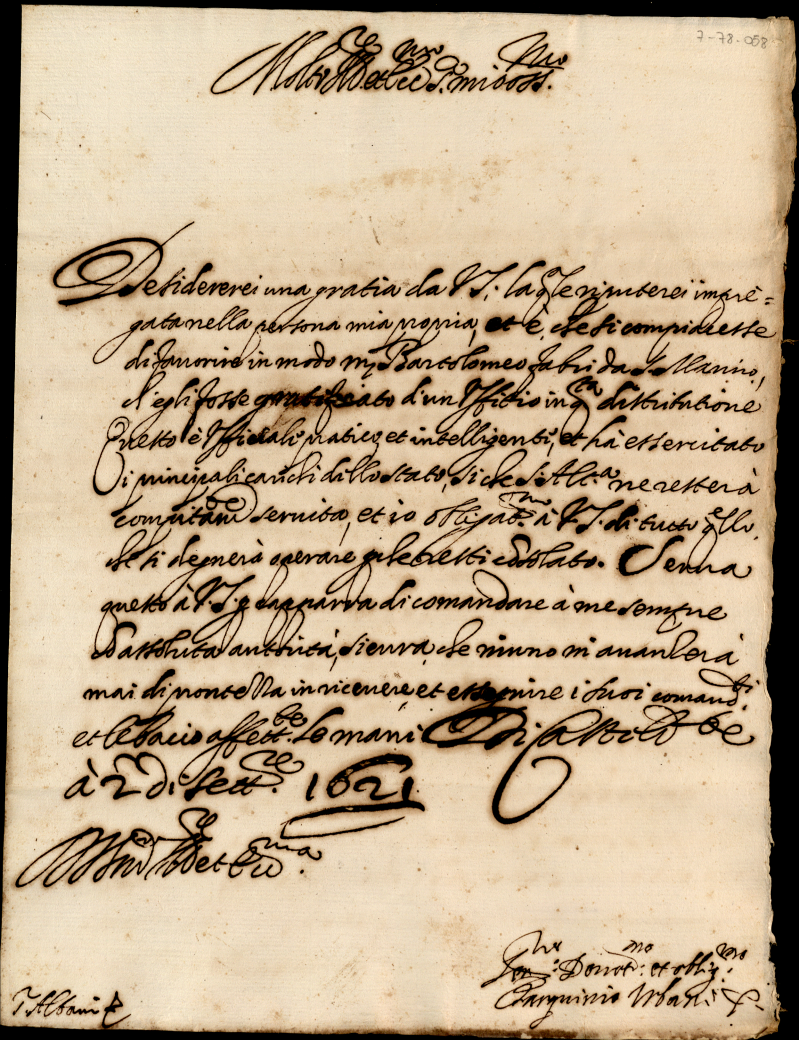 7-78.058
Molto Ill.re et Ecc.mo S.r mio oss.mo
Desidererei una gratia da V.S. la q.le riputerei impie=
gata nella persona mia propria, et è, che si compiacesse
di favorire in modo m. Bartolomeo fabri da S. Marino,
ch'egli fosse gratificato d'un Offitio in q.ta distributione
Questo è Offitiale pratico, et intelligente, et hà essercitato
i principali carichi di llo stato, si che S. Alt.a ne resterà
compitam.te servita, et io obligat.mo à V.S. di tutto q.ello,
che si degnerà operare p che resti cosolato. Senza
questo à V.S. p caparra di comandare à me sempre
cō assoluta auttorità, sicura, che niuno mi avanzerà
mai di prontezza in ricevere, et esseguire i suoi comand.ti
et le bacio affett.te le mani Di Castel
à 2 di Sett.re 1621
V.S. molto Ill.re et Ecc.ma
Ser.re Devot.mo et oblig.mo
Tarquinio Urbani
T. Albani